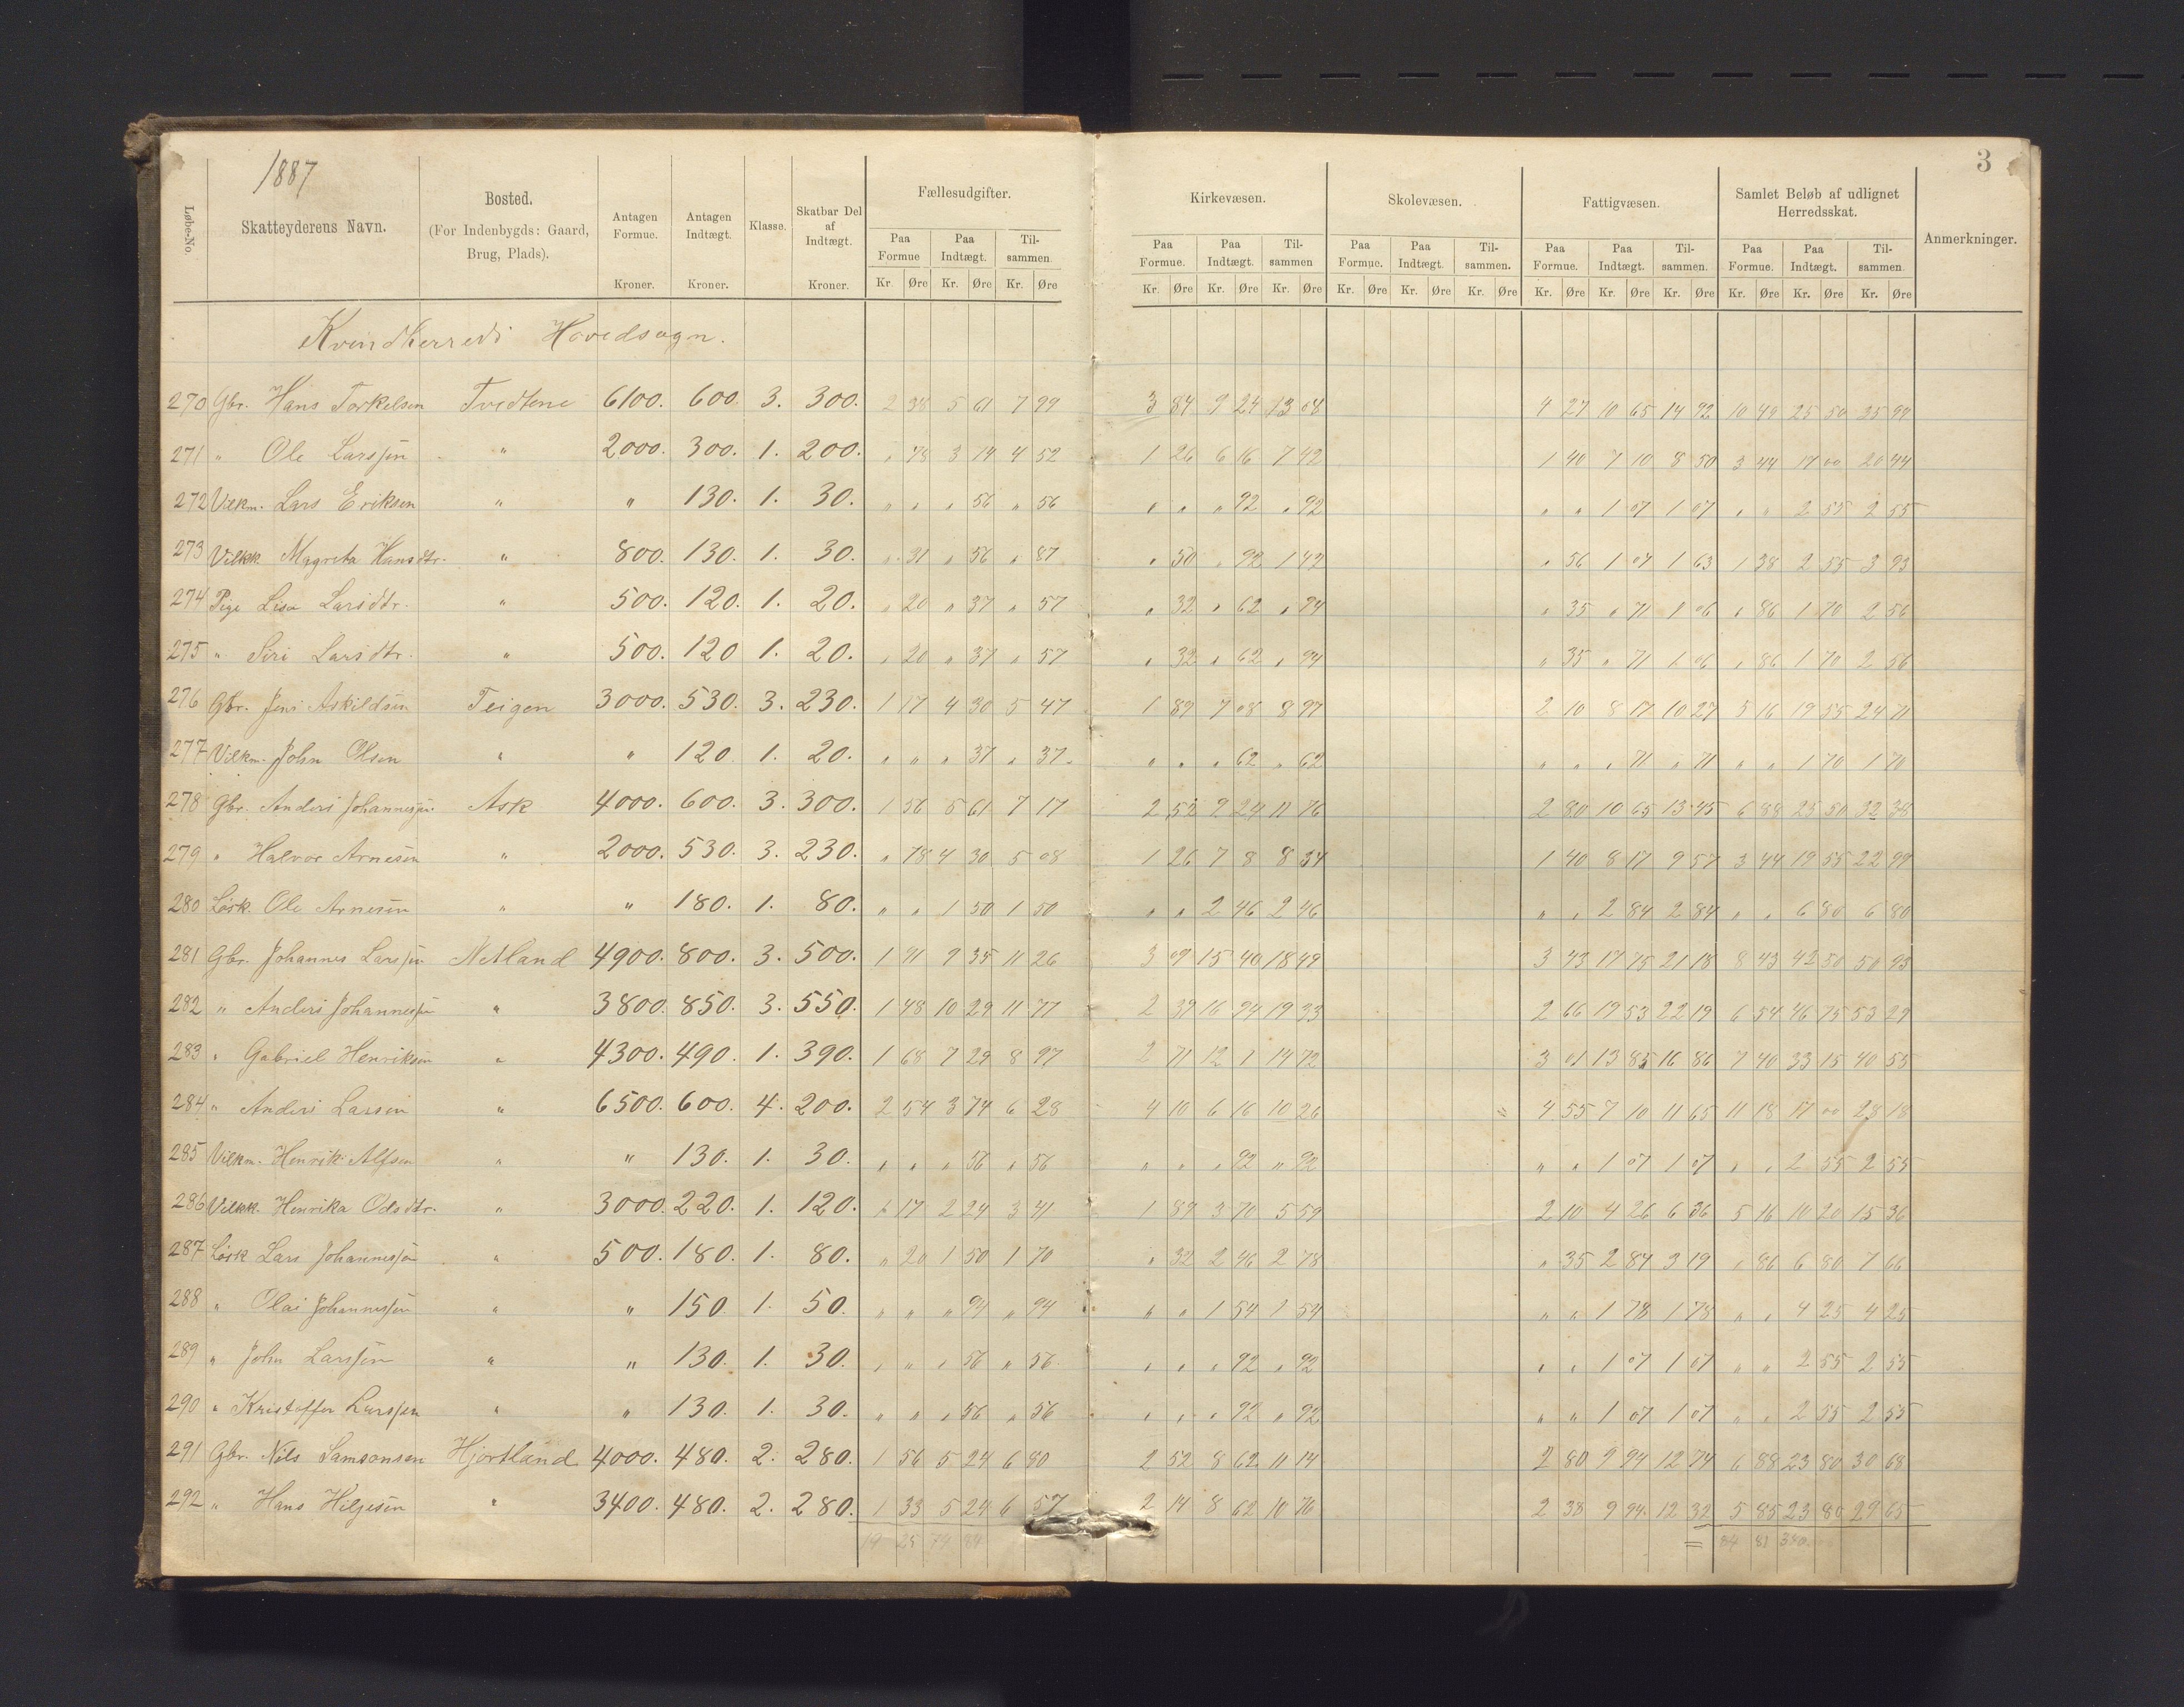 1887
3
Løbe-No. Skatteyderens Navn. Bosted. (For Indenbygds: Gaard, Brug, Plads). Antagen Formue. Kroner. Antagen Indtægt. Kroner. Klasse. Skatbar Del af Indtægt. Kroner. Fællesudgifter. Kirkevæsen. Skolevæsen. Fattigvæsen. Samlet Beløb af udlignet Herredsskat. Anmerkninger.
Paa Formue Paa Indtægt. Til-sammen. Paa Formue. Paa Indtægt. Til-sammen Paa Formue. Paa Indtægt. Til-sammen. Paa Formue. Paa Indtægt. Til-sammen. Paa Formue. Paa Indtægt. Til-sammen.
Kr. Øre Kr. Øre Kr. Øre Kr. Øre Kr. Øre Kr. Øre Kr. Øre Kr. Øre Kr. Øre Kr. Øre Kr. Øre Kr. Øre Kr. Øre Kr. Øre Kr. Øre
Kvindherreds Hovedsogn.
270 Gbr. Hans Torkelsen Tvedtene 6100. 600. 3. 300. 2 38 5 61 7 99 3 84 9 24 13 08 4 27 10 65 14 92 10 49 25 50 35 99
271 " Ole Larssen " 2000. 300. 1. 200. " 78 3 74 4 52 1 26 6 16 7 42 1 40 7 10 8 50 3 44 17 00 20 44
272 Vilkm. Lars Eriksen " " 130. 1. 30. " " " 56 " 56 " " " 92 " 92 " " 1 07 1 07 " " 2 55 2 55
273 Vilkk. Magreta Hansdtr. " 800. 130. 1. 30. " 31 " 56 " 87 " 50 " 92 1 42 " 56 1 07 1 63 1 38 2 55 3 93
274 Pige Lisa Larsdtr. " 500. 120. 1. 20. " 20 " 37 " 57 " 32 " 62 " 94 " 35 " 71 1 06 " 86 1 70 2 56
275 " Siri Larsdtr. " 500. 120 1. 20. " 20 " 37 " 57 " 32 " 62 " 94 " 35 " 71 1 06 " 86 1 70 2 56
276 Gbr. Jens Askildsen Teigen 3000. 530. 3. 230. 1 17 4 30 5 47 1 89 7 08 8 97 2 10 8 17 10 27 5 16 19 55 24 71
277 Vilkm. John Olsen " " 120 1. 20. " " " 37 " 37. " " " 62 " 62 " " " 71 " 71 " " 1 70 1 70
278 Gbr. Anders Johannessen Ask 4000. 600. 3. 300. 1 56 5 61 7 17 2 52 9 24 11 76 2 80 10 65 13 45 6 88 25 50 32 38
279 " Halvor Arnesen " 2000. 530. 3. 230. " 78 4 30 5 08 1 26 7 8 8 34 1 40 8 17 9 57 3 44 19 55 22 99
280 Løsk. Ole Arnesen " " 180. 1. 80. " " 1 50 1 50 " " 2 46 2 46 " " 2 84 2 84 " " 6 80 6 80
281 Gbr. Johannes Larssen Netland 4900. 800. 3. 500. 1 91 9 35 11 26 3 09 15 40 18 49 3 43 17 75 21 18 8 43 42 50 50 93
282 " Anders Johannessen " 3800. 850. 3. 550. 1 48 10 29 11 77 2 39 16 94 19 33 2 66 19 53 22 19 6 54 46 75 53 29
283 " Gabriel Henriksen " 4300. 490. 1. 390. 1 68 7 29 8 97 2 71 12 1 14 72 3 01 13 85 16 86 7 40 33 15 40 55
284 " Anders Larsen " 6500. 600. 4. 200. 2 54 3 74 6 28 4 10 6 16 10 26 = 4 55 7 10 11 65 11 18 17 00 28 18
285 Vilkm. Henrik Alfsen " " 130. 1. 30. " " " 56 " 56 " " " 92 " 92 " " 1 07 1 07 " " 2 55 2 55
286 Vilkk. Henrika Olsdtr. " 3000. 220. 1. 120. 1 17 2 24 3 41 1 89 3 70 5 59 2 10 4 26 6 36 5 16 10 20 15 36
287 Løsk Lars Johannessen " 500. 180. 1. 80. " 20 1 50 1 70 " 32 2 46 2 78 " 35 2 84 3 19 " 86 6 80 7 66
288 " Olai Johannessen " " 150. 1. 50. " " " 94 " 94 " " 1 54 1 54 " " 1 78 1 78 " " 4 25 4 25
289 " John Larssen " " 130. 1. 30. " " " 56 " 56. " " " 92 " 92 " " 1 07 1 07 " " 2 55 2 55
290 " Kristoffer Larssen " " 130. 1. 30. " " " 56 " 56 " " " 92 " 92 " " 1 07 1 07 " " 2 55 2 55
291 Gbr. Nils Samsonsen Hjortland 4000. 480. 2. 280. 1 56 5 24 6 80 2 52 8 62 11 14 2 80 9 94 12 74 6 88 23 80 30 68
292 " Hans Hiljesen " 3400. 480. 2. 280. 1 33 5 24 6 57 2 14 8 62 10 76 2 38 9 94 12 32 5 85 23 80 29 65
84 81